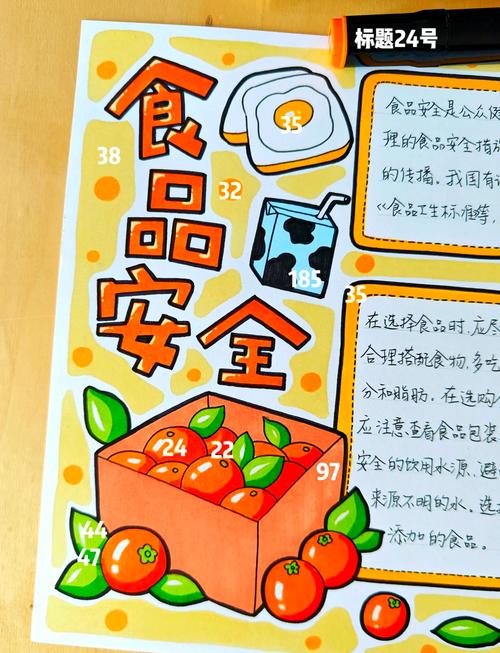 标题24号
食品安全
38
35
32
185
35
24
22
97
44
47
食品安全是公众健
理的食品安全措施
的传播。我国有
《食品卫生标准等,
在选择食品时,应尽
合理搭配食物,多吃
分和脂肪。在选购
应注意查看食品包装
安全的饮用水源、避
来源不明的水。选
添加的食品。